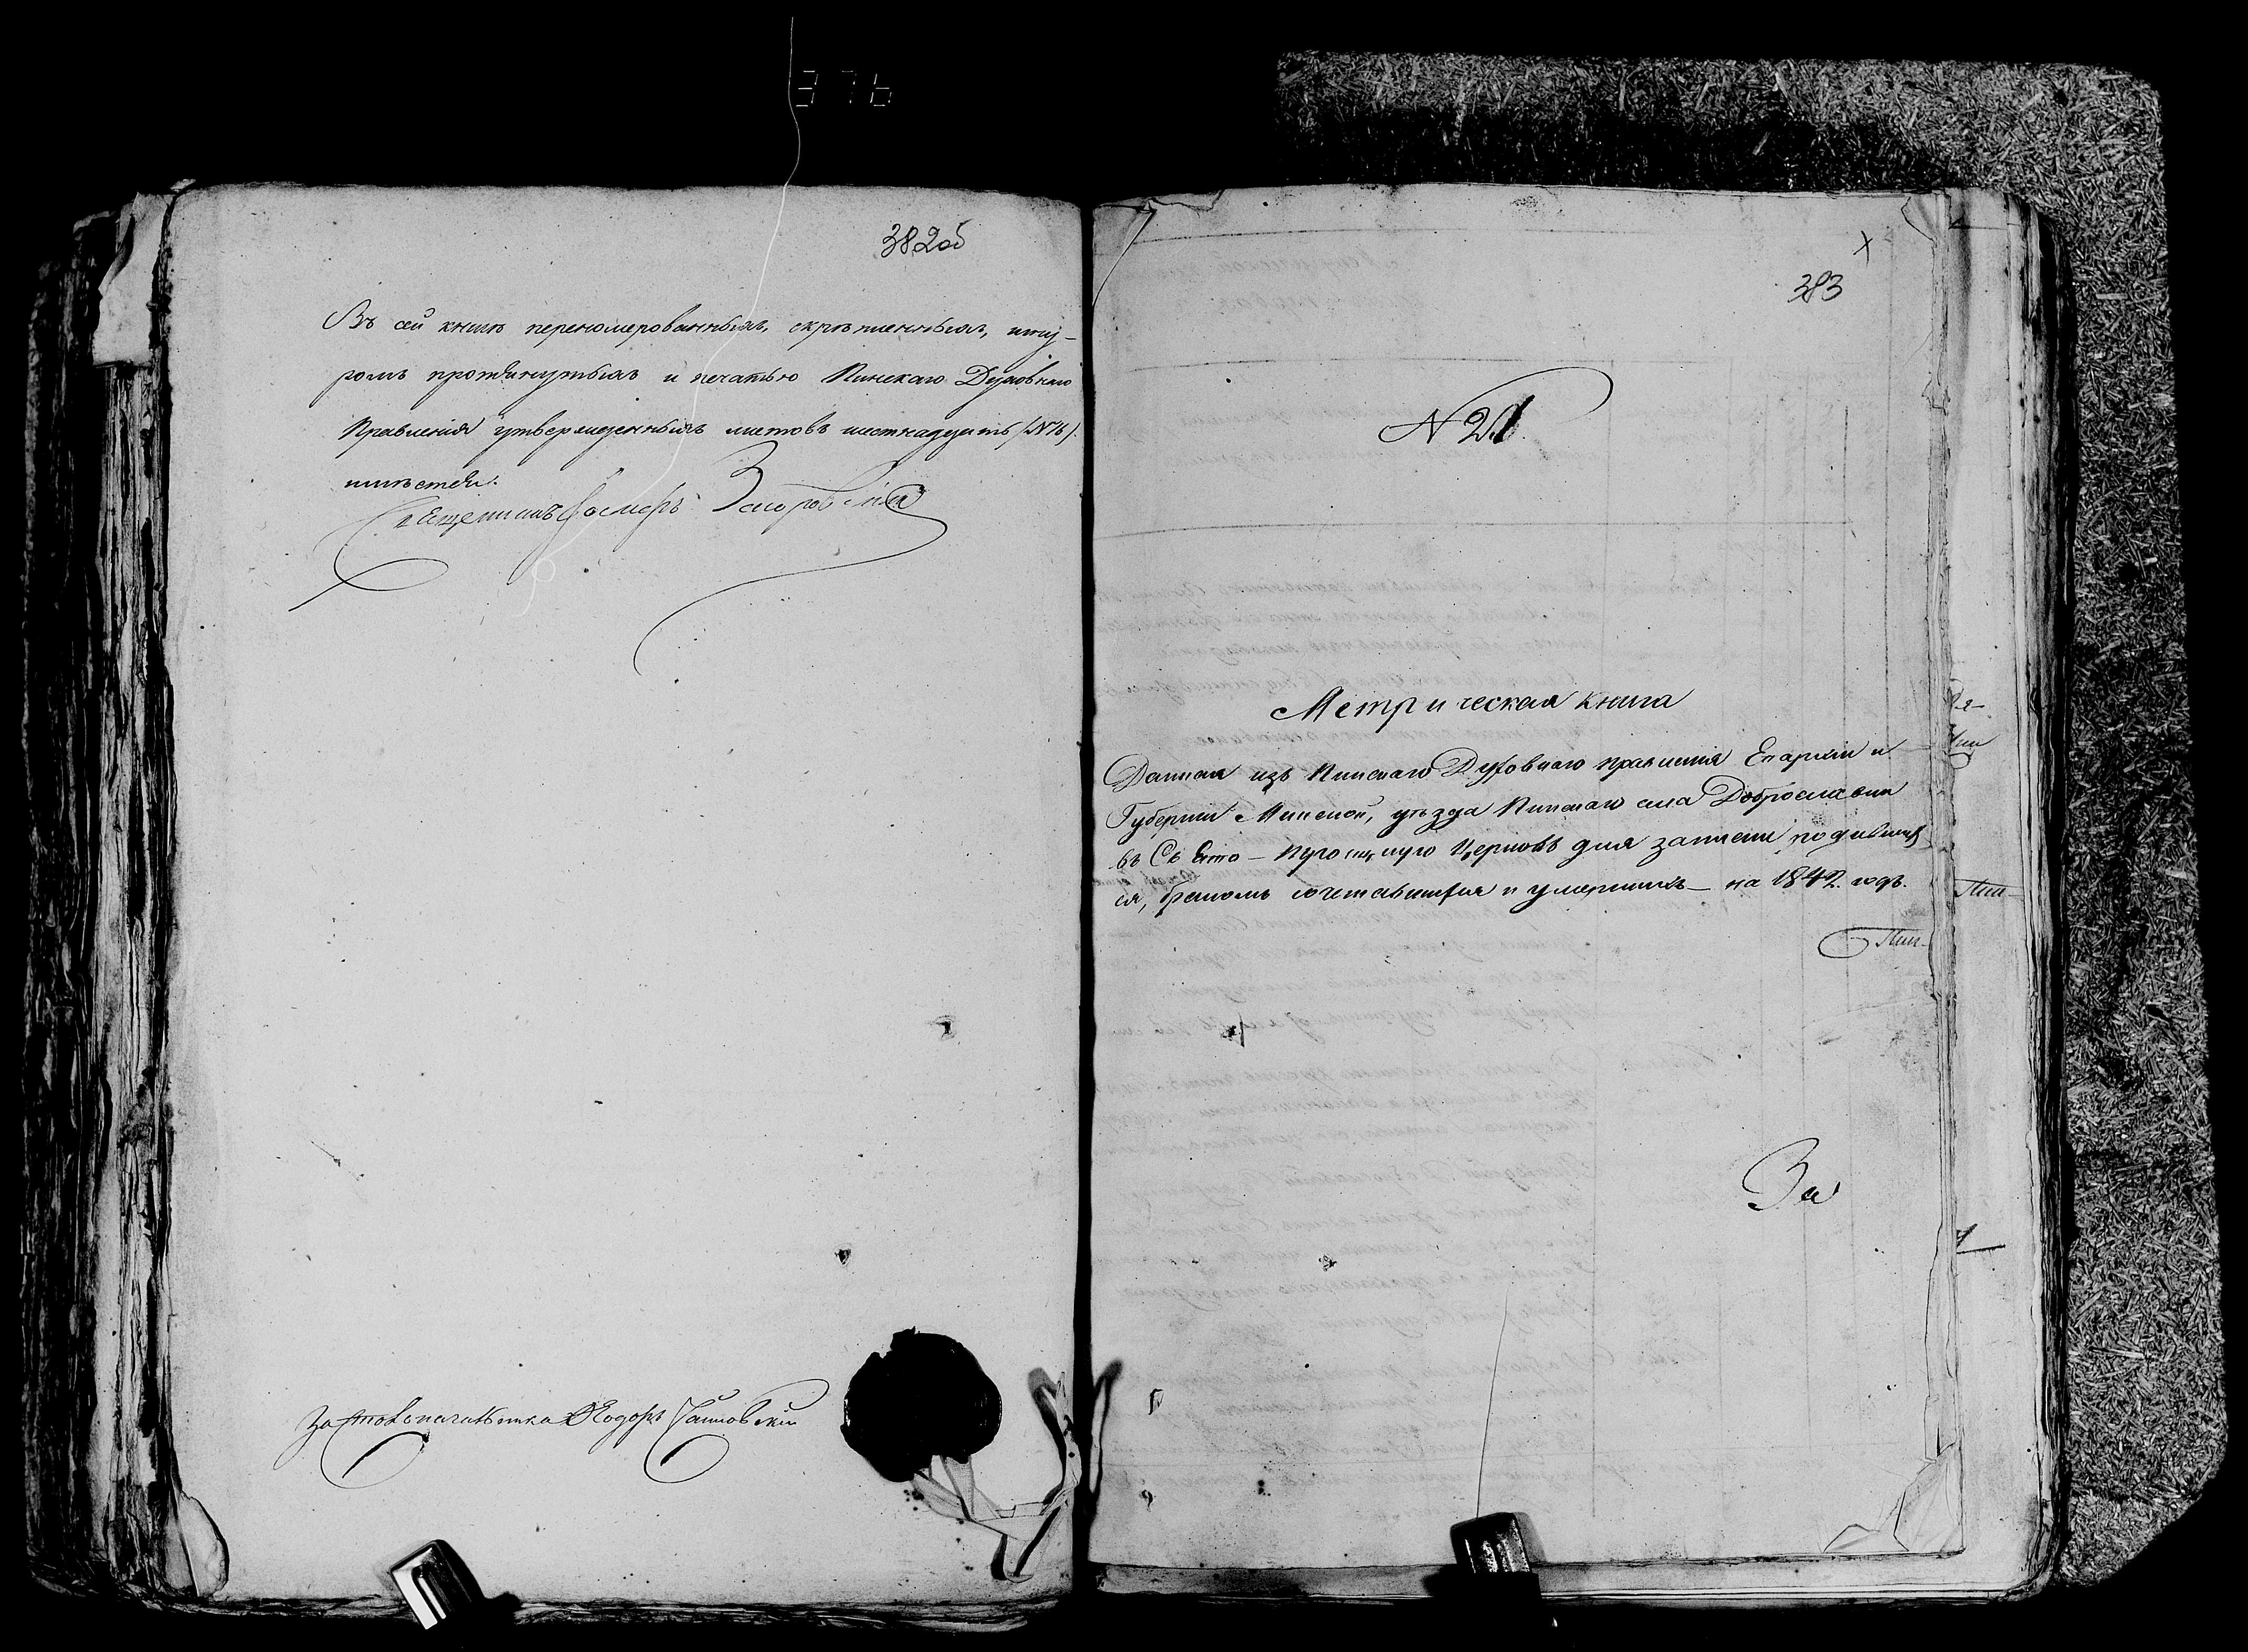 376
382об
Въ сей книге переномерованныхъ, скрѣпленныхъ, шну-
ромъ протянутыхъ и печатью Пинскаго Духовнаго
Правленія утвержденныхъ листовъ шестнадцать (№16).
имѣетъя.
Священникъ Заморовскій
За Столоначальника Ѳеодоръ
383
N 21.
Метрическая книга
Данная изъ Пинскаго Духовнаго правленія Епархіи и
Губерніи Минской, уѣзда Пинскаго села Доброславки
въ Свято- Церковь для записки родивших
ся, бракомъ сочетавшихся и умершихъ – на 1842. годъ.
Пин-
За